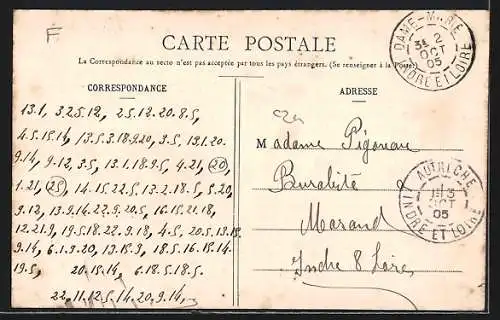 F
CARTE POSTALE
La Correspondance au recto n'est pas acceptée par tous les pays étrangers. (Se renseigner à la Poste).
CORRESPONDANCE
ADRESSE
13.1, 3.2.5.12, 2.5.12.20.8.5,
4.5.15.14, 13.5.3.18.9.20, 3.5, 13.1.20.
9.14, 9.12, 3.5, 13.1.18.9.5, 4.21, 20,
1.21, 25, 14.15.22.5, 13.2.18.5, 5.20,
9.12, 13.9.14.22.9.20.5, 16.15.21.18,
12.21.9, 19.5.18.22.9.18, 4.5, 20.5,
9.14, 6.1.9.20, 13.15.9, 18.5.16.15.14.
19.5, 20.15.14 6.18.5.18.5.
22.11.12.5.14.20.9.14,
Madame Pigoreau
Buraliste
Marand
Indre & Loire
DAME-MARIE
3E 2
OCT
05
INDRE ET LOIRE
AUTRECHE
OCT
05
INDRE ET LOIRE